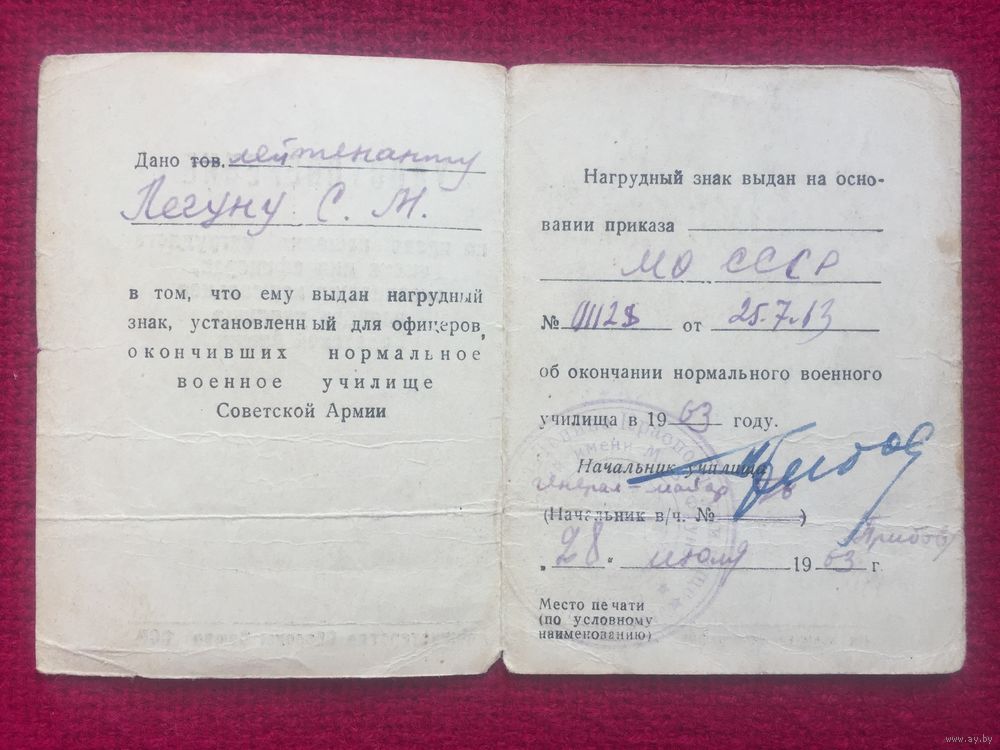 Дано тов. лейтенанту
Легуну С. М.
в том, что ему выдан нагрудный
знак, установленный для офицеров,
окончивших нормальное
военное училище
Советской Армии
Нагрудный знак выдан на осно-
вании приказа
МО СССР
№ от 25.7.63
об окончании нормального военного
училища в 1963 году.
имени М.
Начальник училища
генерал-майор
(Начальник в/ч. № )
Грибов
„28“ июля 1963 г.
Место печати
(по условному
наименованию)
www.ay.by